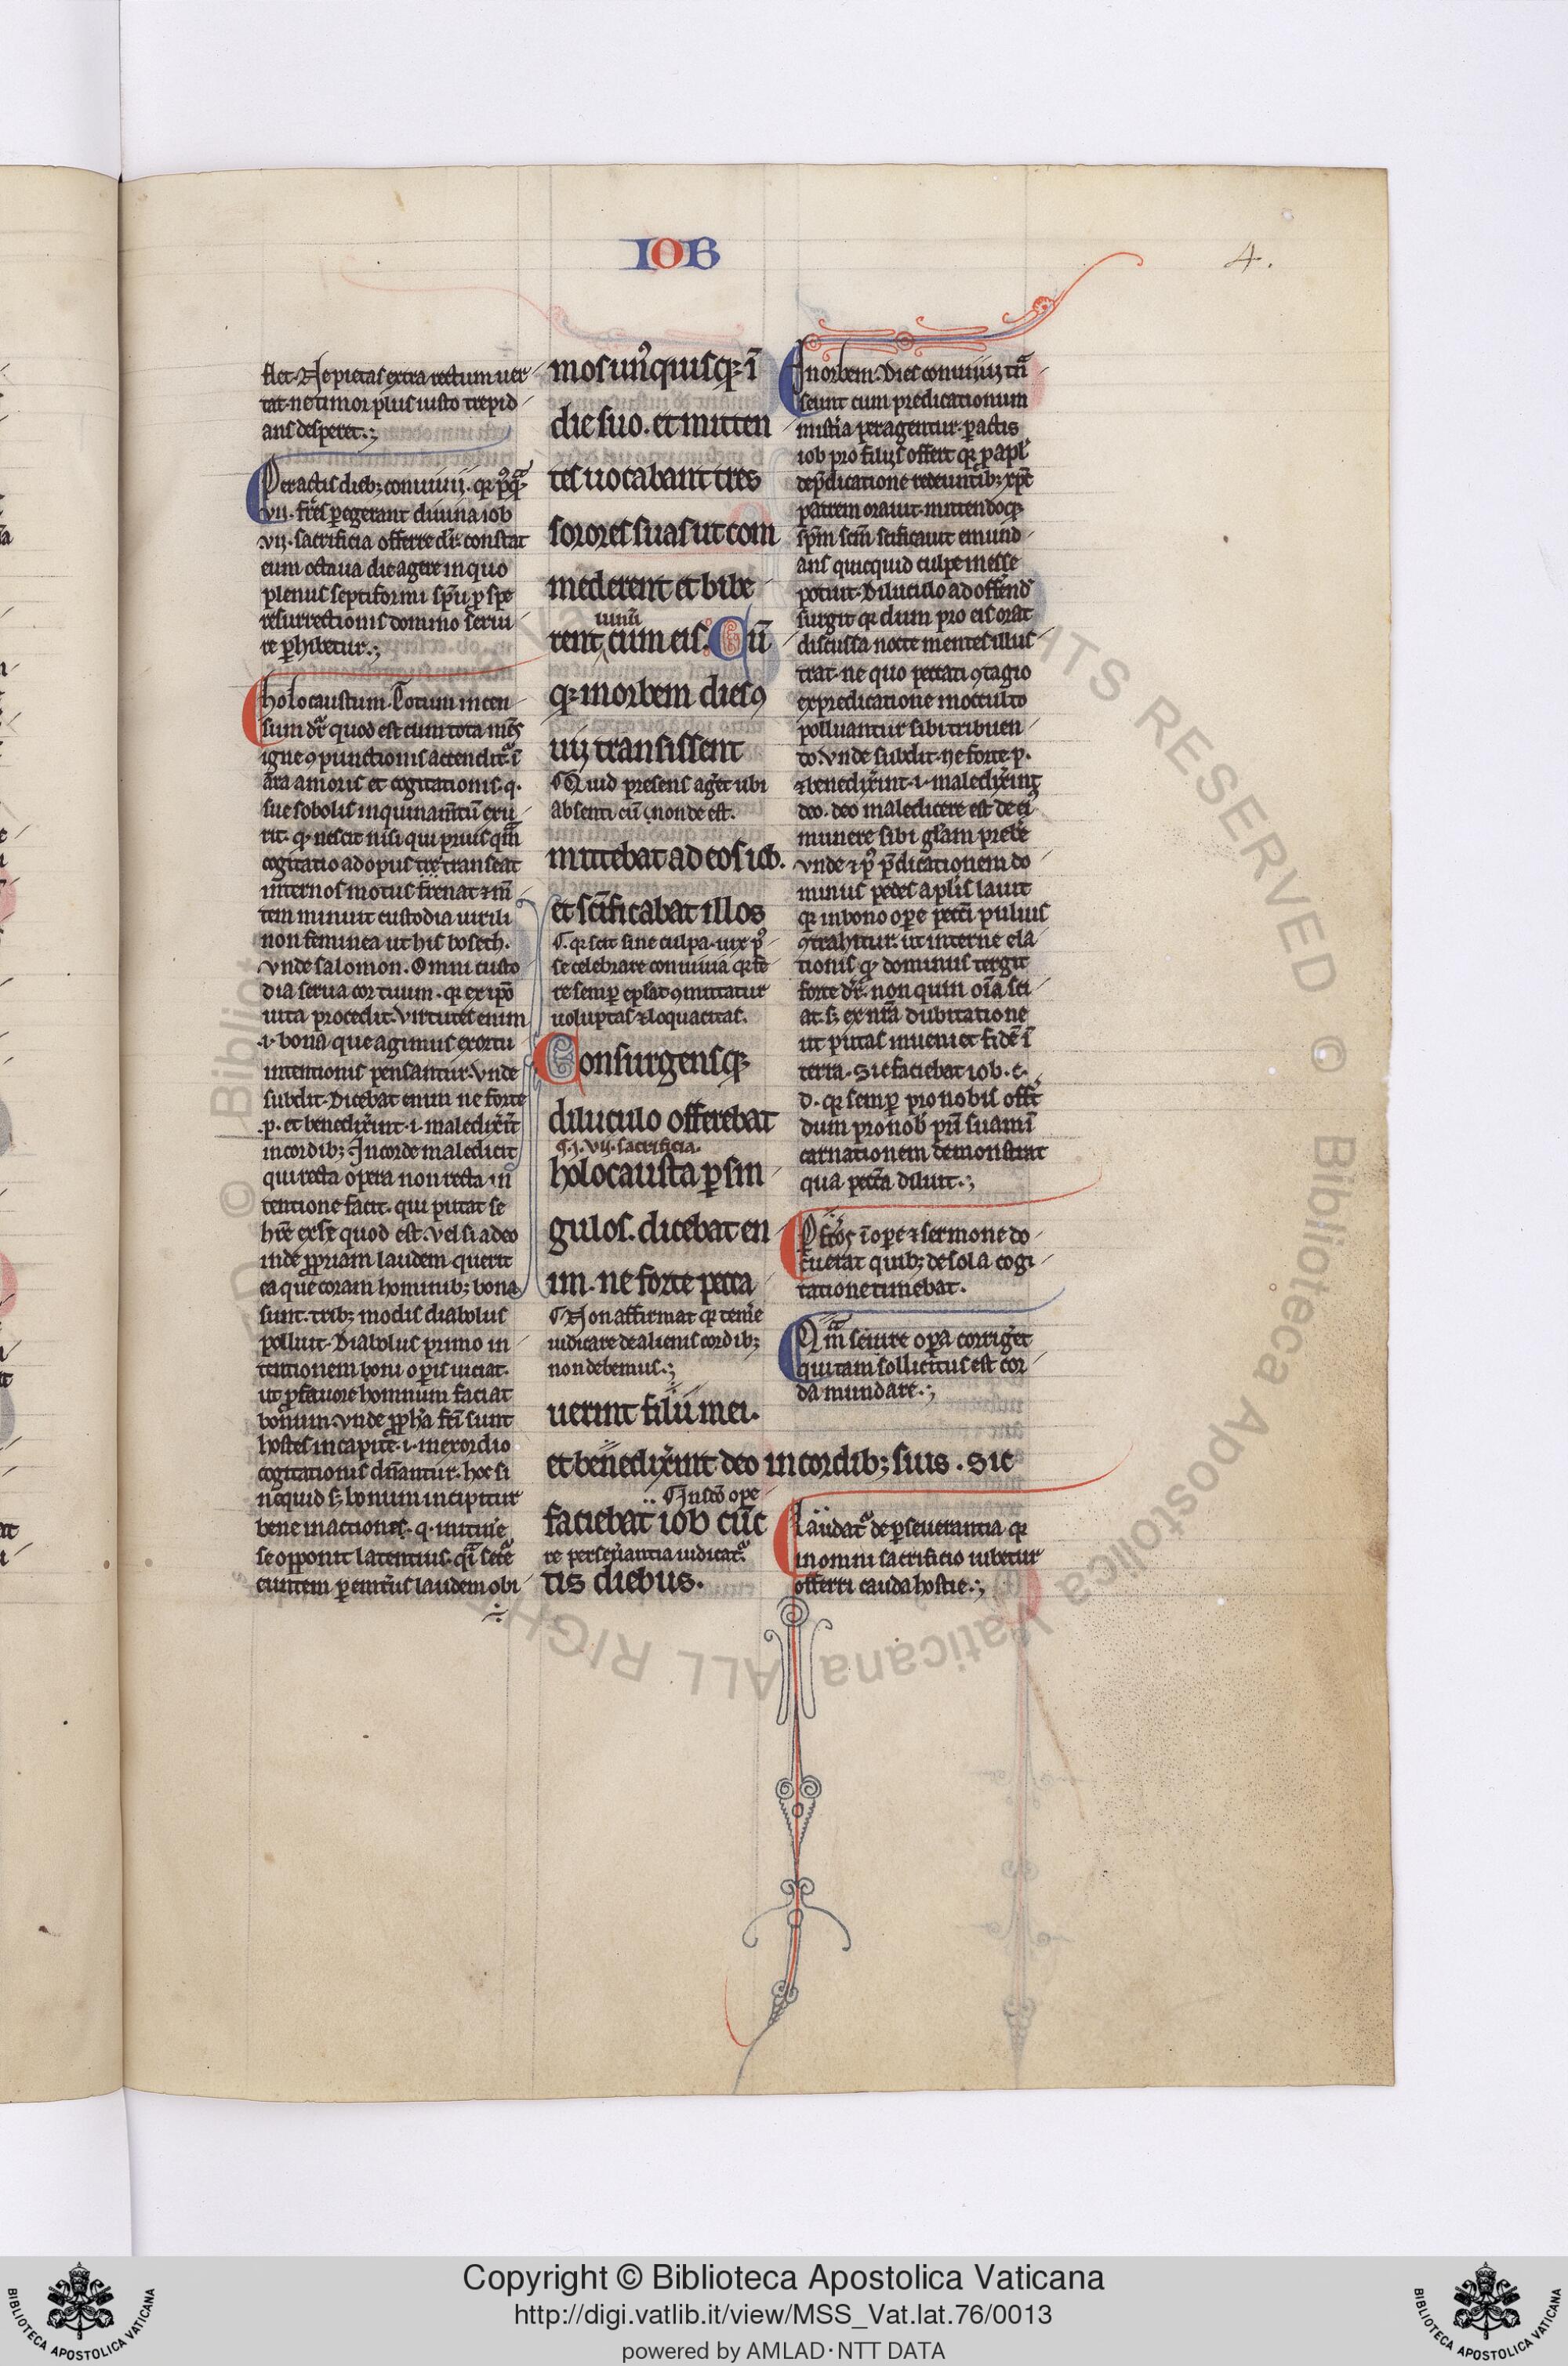 IOB
4.
flet. Ne pietas extra rectum uer
tat. ne timor plus iusto trepid
ans desperet.
Peractis dieb; conuiuii. qr p9qa
vii. fr̄es ꝑegerant diuina iob
.vij. sacrificia offerre dr̄. constat
eum octaua die agere in quo
plenus septiformi sp̄u ꝓ spe
resurrectionis domino serui
re ꝑhibetur.
holocaustum. Totum incen
sum dr̄ quod est cum tota mēs
igne ꝯpunctionis accendit᷑. ī
ara amoris et cogitationis. q.
sue sobolis inquinam̄tū exu
rit. qd nescit nisi qui prius qm̄
cogitatio ad opus transeat
internos motus frenat ⁊ m̄
tem minuit custodia uirili
non feminea ut hisboseth.
vnde salomon. Omni custo
dia serua cor tuum. qr ex ip̄o
uita procedit. Virtutes enim
.i. bona que agimus exortu
intentionis pensantur. Vnde
subdit. Dicebat enim ne forte
.p. et benedix̄int .i. maledix̄īt
in cordib; In corde maledicit
qui recta opera non recta in
tentione facit. qui putat se
hr̄e ex se quod est. vel si a deo
inde ꝓpriam laudem querit
ea que coram hominib; bona
sunt. trib; modis diabolus
polluit. Diabolus primo in
tentionem boni oꝑis uiciat.
ut ꝓ fauore hominum faciat
bonum. vnde ꝓph̄a fc̄i sunt
hostes in capite .i. in exordio
cogitationis dn̄antur. hoc si
nequid s; bonum incipitur
bene in actiones. q. initinēe
se opponit latentius. qi̅ secrē
euntem ꝑemit᷑us laudem obi
mos un9quisq; ī
die suo. et mitten
tes uocabant tres
sorores suas ut com
mederent et bibe
uinū
rent cum eis. Cū
q; in orbem dies ꝯ
uij transissent
Quid presens ag̅et ubi
absenti cū i non de est.
mittebat ad eos iob.
et scīficabat illos
qr scit sine culpa. uix p9
se celebrare conuiuia qr fe
re semꝑ epl̅as ꝯmittatur
uoluptas ⁊ loquacitas.
Consurgensq;
diluculo offerebat
.i. vij. sacrificia.
holocausta ꝑ sin
gulos. dicebat en
im. ne forte pecca
Non affirmat qr temēe
iudicare de alienis cordib;
non debemus.
uerint filii mei.
et benedix̄int deo in cordib; suis. sic
In sc̄o ope
faciebat iob cūc
re perseūantia iudicat᷑.
tis diebus.
In orbem. Dies conuiuij tn̄
seunt cum predicationum
mist̄ia peragentur. ꝑactis
iob pro filijs offert qr ꝓ apl̄
de p̄dicatione redeuntib; xp̄c
patrem orauit. mittendoq;
sp̄m scm̄ scificauit emund
ans quicquid culpe in esse
potuit. Diluculo ad offend̄
surgit qr dum pro eis orat
discussa nocte mentes illus
trat. ne quo peccati ꝯtagio
ex predicatione in occulto
polluantur sibi tribuen
to. Vnde subdit. ne forte p.
⁊ benedix̄int .i. maledix̄int
deo. deo maledicere est de ei9
munere sibi gl̄am preb̄e
vnde ⁊ p9 p̄dicationem do
minus pedes aplis lauit
qr in bono oꝑe pecci puluis
ꝯtrahitur. ut interne ela
tionis qd dominus tergit
forte dr̄. non quin oīa sci
at. s; ex nr̄a dubitatione
ut putas inueniet fidē ī
terra. Sic faciebat iob. c.
d. qr semꝑ pro nobis offrt
dum pro nob pri̅ suam ī
carnationem demonstrat
qua pecc̄a diluit.
Pfc̄os ī oꝑe ⁊ sermone do
cuerat quib; de sola cogi
tatione timebat.
Qm̄ seuire oꝑa corriget
qui tam sollicitus est cor
da mundare.
Laudat᷑ de ꝑseuerantia qr
in omni sacrificio iubetur
offerri cauda hostie.
© Biblioteca Apostolica Vaticana ALL RIGHTS RESERVED
Copyright © Biblioteca Apostolica Vaticana
http://digi.vatlib.it/view/MSS_Vat.lat.76/0013
powered by AMLAD·NTT DATA
BIBLIOTECA APOSTOLICA VATICANA
BIBLIOTECA APOSTOLICA VATICANA